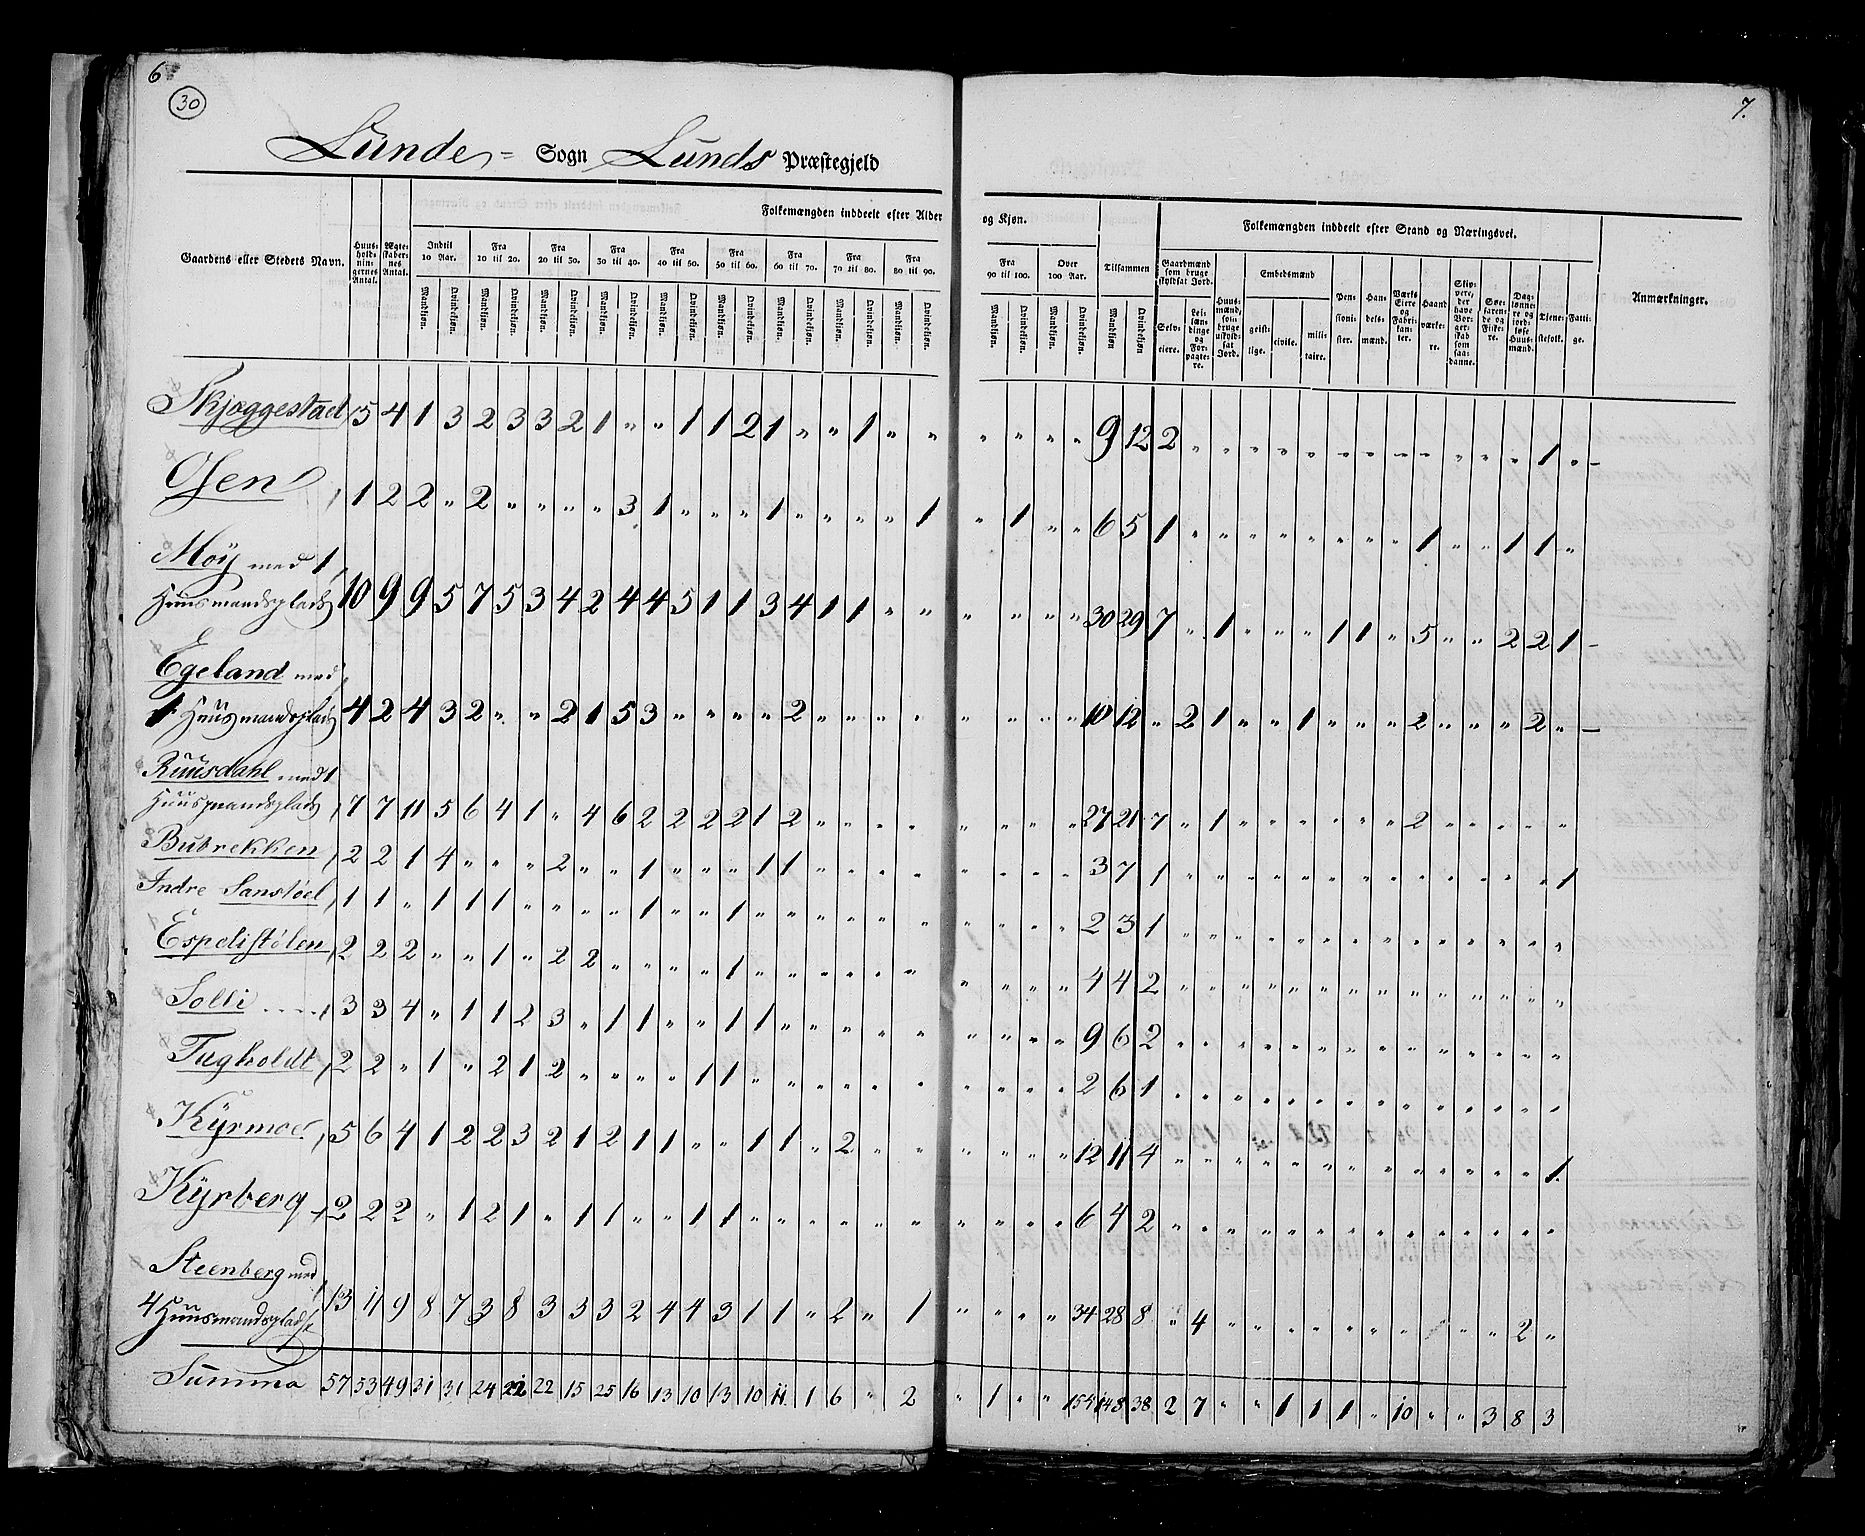 6
30
7.
Lunde = Sogn Lunds Præstegjeld
Gaardens eller Stedets Navn.
Huusholdningernes Antal.
Ægteskabernes Antal.
Folkemængden inddeelt efter Alder og Kjøn.
Indtil 10 Aar.
Fra 10 til 20.
Fra 20 til 30.
Fra 30 til 40.
Fra 40 til 50.
Fra 50 til 60.
Fra 60 til 70.
Fra 70 til 80.
Fra 80 til 90.
Fra 90 til 100.
Over 100 Aar.
Tilsammen
Mandkjøn. Qvindekjøn.
Folkemængden inddeelt efter Stand og Næringsvei.
Gaardmænd som bruge skyldsat Jord.
Selveiere.
Leilændinge og Forpagtere.
Huusmænd, som bruge uskyldsat Jord.
Embedsmænd
geistlige.
civile.
militaire.
Pensionister.
Handelsmænd.
Værkseiere og Fabrikanter.
Haandværkere.
Skippere, der have Borgerskab som saadanne.
Søefarende og Fiskere.
Daglønnere og jordløse Huusmænd.
Tjenestefolk.
Fattige.
Anmærkninger.
Skjæggestad, 5 4 1 3 2 3 3 2 1 " " 1 1 2 1 " " 1 " " " " " " 9 12 2 " " " " " " " " " " " " 1 " –
Osen, 1 2 2 " 2 " " " " 3 1 " " " 1 " " " " 1 " 1 " " 6 5 1 " " " " " " " " 1 " " 1 1 "
Moÿ med 1
Huusmandsplads 10 9 9 5 7 5 3 4 2 4 4 5 1 1 3 4 1 1 " " " " " " 30 29 7 " 1 " " " 1 1 " 5 " " 2 2 1 –
Egeland med
1 Huusmandsplads 4 2 4 3 2 " " 2 1 5 3 " " " " 2 " " " " " " " " 10 12 " 2 1 " " 1 " " " 2 " " " 2 " –
Ruusdahl med 1
Huusmandsplads, 7 7 11 5 6 4 1 " 4 6 2 2 2 2 1 2 " " " " " " " " 27 21 7 " 1 " " " " " " 2 " " " " "
Bubrekken, 2 2 1 4 " " " 2 " " 1 " " " 1 1 " " " " " " " " 3 7 1 " " " " " " " " " " " " " 1
Indre Sanstöel, 1 1 " 1 1 1 " " " " 1 " " 1 " " " " " " " " " " 2 3 1 " " " " " " " " " " " " " "
Espelistölen, 2 2 2 " " 1 " 2 2 " " " " 1 " " " " " " " " " " 4 4 2 " " " " " " " " " " " " " "
Solli ...., 3 3 4 " 1 1 2 3 " 1 1 " " 1 1 " " " " " " " " " 9 6 2 " " " " " " " " " " " " " "
Tugholdt, 2 2 " 1 " 2 1 2 " " " " 1 1 " " " " " " " " " " 2 6 1 " " " " " " " " " " " " " "
Kÿrmoe, 5 6 4 1 2 2 3 2 1 2 1 1 " " 1 1 " 2 " " " " " " 12 11 4 " " " " " " " " " " " " " 1.
Kÿrberg, 2 2 2 " 1 2 1 " 1 1 " " 1 1 " " " " " " " " " " 6 4 2 " " " " " " " " " " " " " "
Steenberg med
4 Huusmandspladse 13 11 9 8 7 3 8 3 3 3 2 4 4 3 1 1 " 2 " 1 " " " " 34 28 8 " 4 " " " " " " " " 2 "
Summa 57 53 49 31 31 24 22 22 15 25 16 13 10 13 10 11. 1 6 " 2 " 1 " " 154 148 38 2 7 " " 1 1 1 " 10 " " 3 8 3